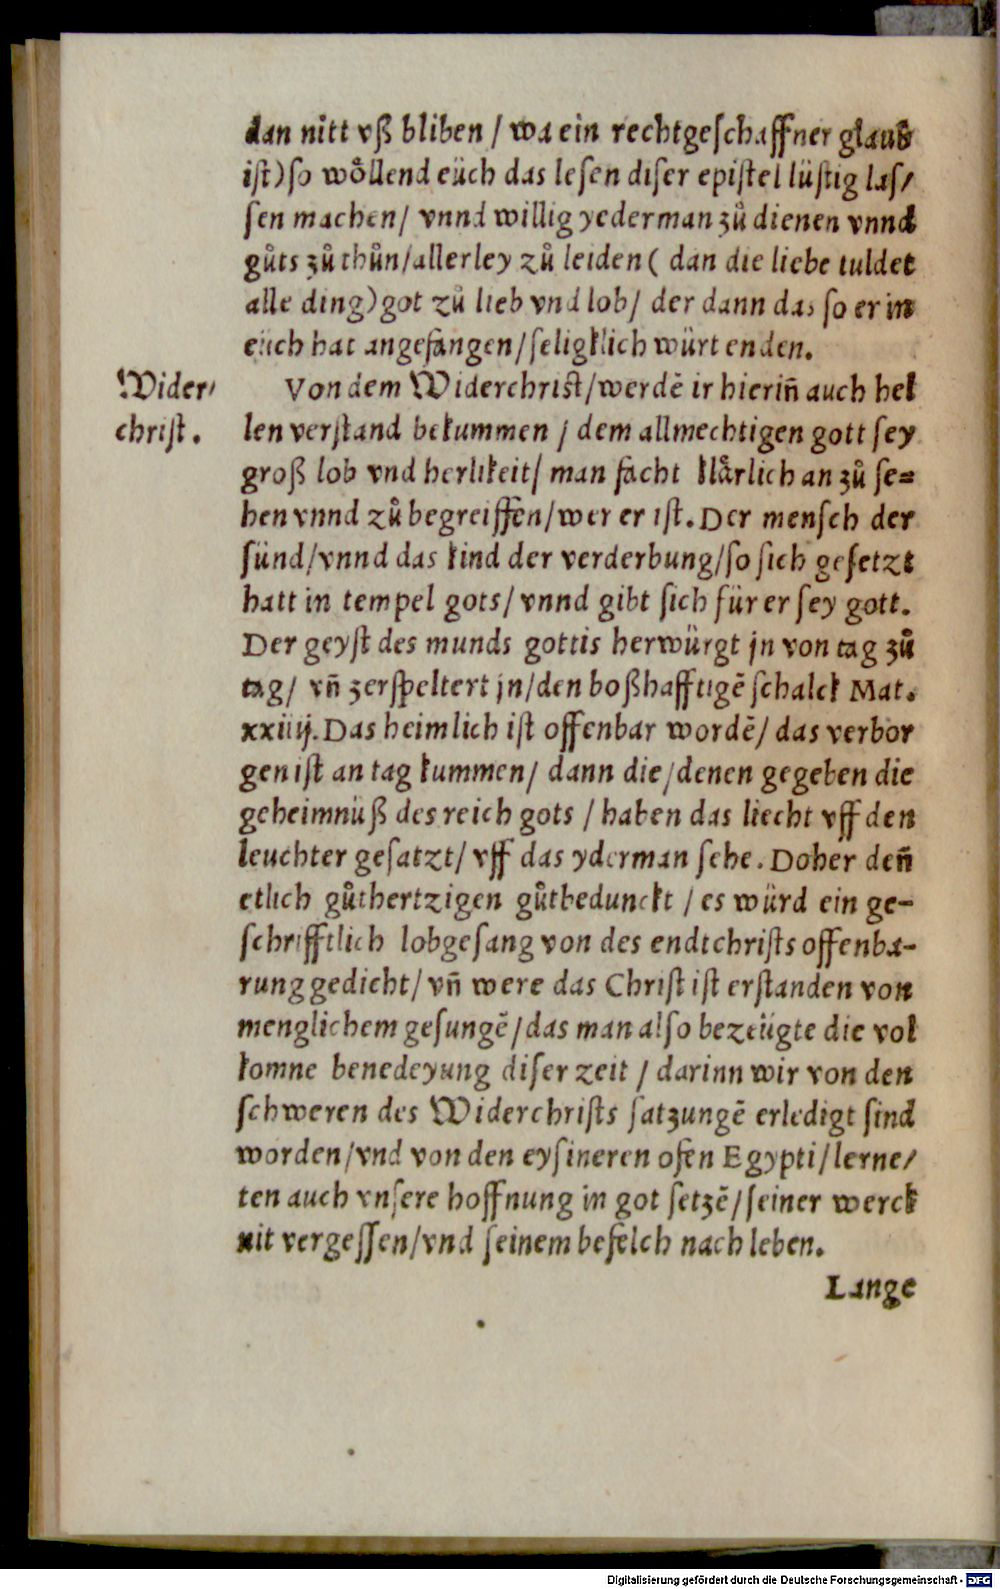 dan nitt vß bliben / wa ein rechtgeschaffner glaub
ist) so wöllend eüch das lesen diser epistel lüstig las/
sen machen / vnnd willig yederman zů dienen vnnd
gůts zů thůn / allerley zů leiden ( dan die liebe tuldet
alle ding) got zů lieb vnd lob / der dann das so er in
eüch hat angefangen / seligklich würt enden.
Wider/
christ.
Von dem Widerchrist / werdē ir hierin̄ auch hel
len verstand bekummen / dem allmechtigen gott sey
groß lob vnd herlikeit / man facht klårlich an zů se=
hen vnnd zů begreiffen / wer er ist. Der mensch der
sünd / vnnd das kind der verderbung / so sich gesetzt
hatt in tempel gots / vnnd gibt sich für er sey gott.
Der geyst des munds gottis herwürgt jn von tag zů
tag / vn̄ zerspeltert jn / den boßhafftigē schalck Mat.
xxiiij. Das heimlich ist offenbar wordē / das verbor
gen ist an tag kummen / dann die / denen gegeben die
geheimnüß des reich gots / haben das liecht vff den
leuchter gesatzt / vff das yderman sehe. Doher den̄
etlich gůthertzigen gůtbedunckt / es würd ein ge-
schrifftlich lobgesang von des endtchrists offenba-
rung gedicht / vn̄ were das Christ ist erstanden von
menglichem gesungē / das man also bezeügte die vol
komne benedeyung diser zeit / darinn wir von den
schweren des Widerchrists satzungē erledigt sind
worden / vnd von den eysineren ofen Egypti / lerne/
ten auch vnsere hoffnung in got setzē / seiner werck
nit vergessen / vnd seinem befelch nach leben.
Lange
Digitalisierung gefördert durch die Deutsche Forschungsgemeinschaft - DFG